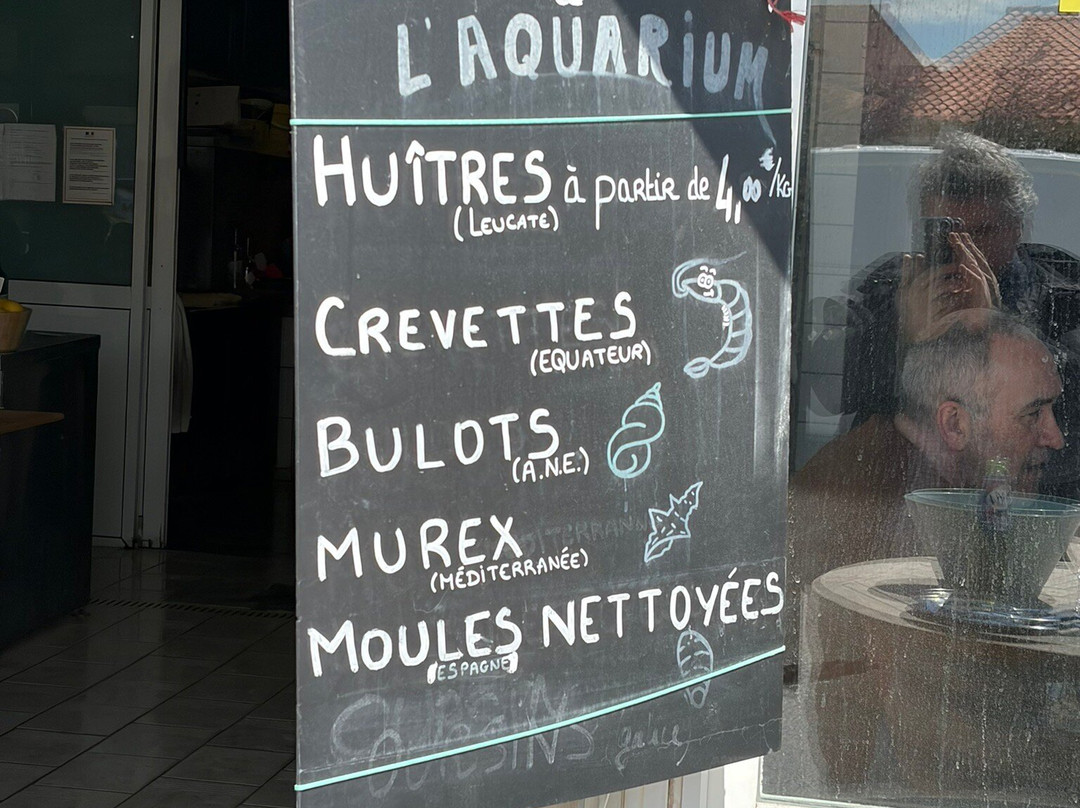 L'AQUARIUM
HUÎTRES à partir de 4,00 €/KG
(LEUCATE)
CREVETTES
(EQUATEUR)
BULOTS
(A.N.E.)
MUREX
(MÉDITERRANÉE)
MOULES NETTOYÉES
(ESPAGNE)
OURSINS